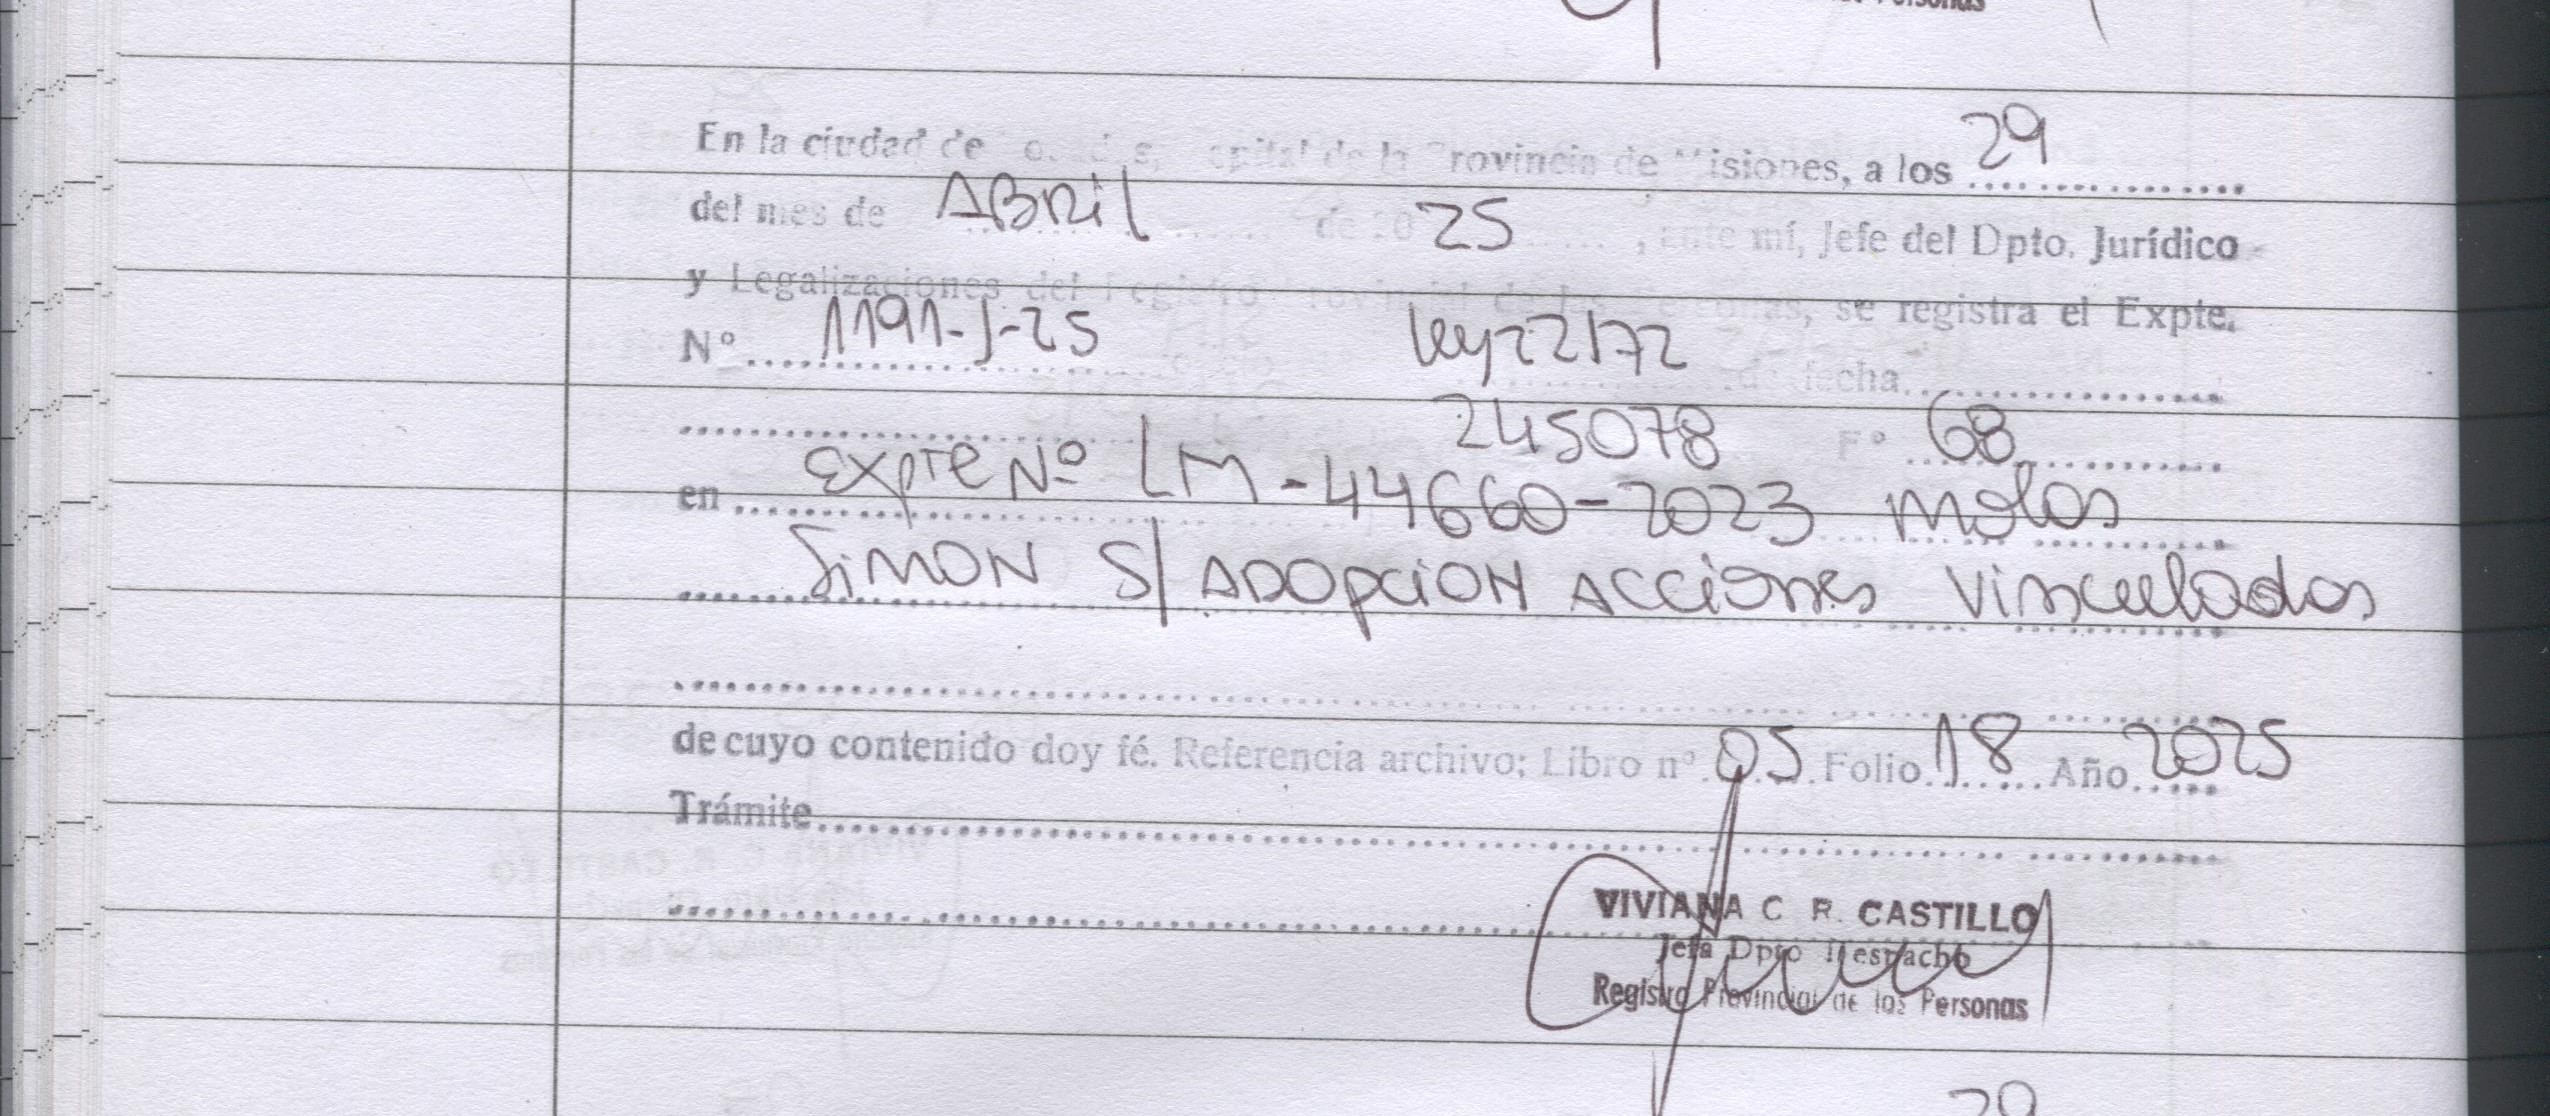 Personas
En la ciudad de Posadas, Capital de la Provincia de Misiones, a los 29
del mes de ABRil de 2025, ante mí, Jefe del Dpto. Jurídico
y Legalizaciones del Registro Provincial de las Personas, se registra el Expte.
Nº 1191-J-25 ley 22172 de fecha
245078 Fº 68
en Expte Nº LM-44660-2023
SiMON S/ ADOPCiON ACCiones Vinculadas
de cuyo contenido doy fé. Referencia archivo; Libro nº 05 Folio 18 Año 2025
Trámite
VIVIANA C R. CASTILLO
Jefa Dpto Despacho
Registro Provincial de las Personas
29